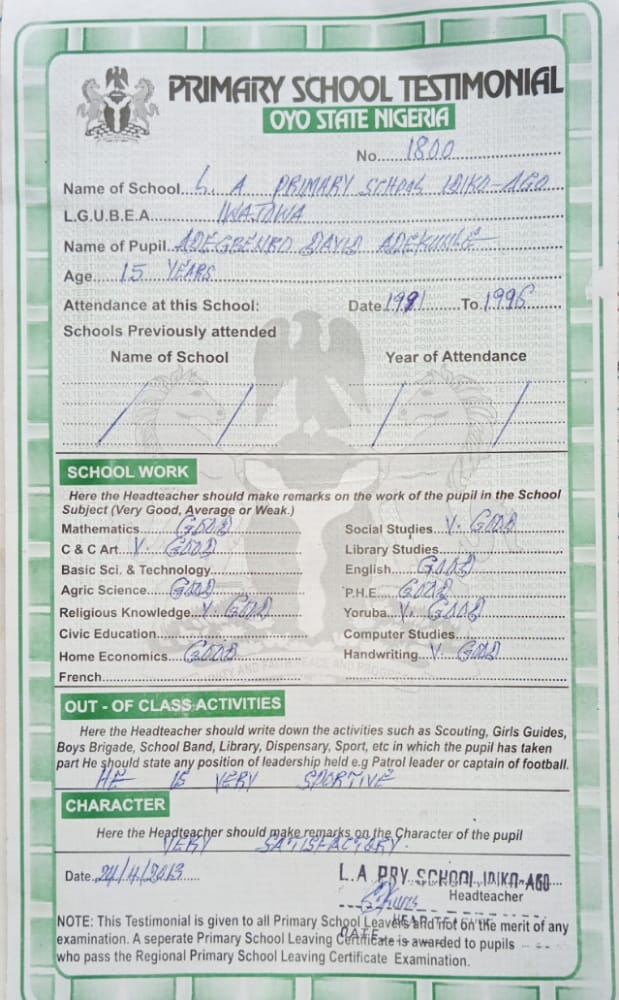 PRIMARY SCHOOL TESTIMONIAL
OYO STATE NIGERIA
No......1800
Name of School..L. A PRIMARY SCHOOL IDIKO-AGO
L.G.U.B.E.A......IWAJOWA
Name of Pupil..ADEGBENRO DAVID ADEKUNLE
Age....15 YEARS
Attendance at this School: Date 1991 To 1996
Schools Previously attended
Name of School Year of Attendance
SCHOOL WORK
Here the Headteacher should make remarks on the work of the pupil in the School
Subject (Very Good, Average or Weak.)
Mathematics......GOOD Social Studies..V. GOOD
C & C Art...V. GOOD Library Studies......
Basic Sci. & Technology...... English......GOOD
Agric Science....GOOD P.H.E....GOOD
Religious Knowledge..V. GOOD Yoruba...V. GOOD
Civic Education...... Computer Studies......
Home Economics...GOOD Handwriting...V. GOOD
French......
OUT - OF CLASS ACTIVITIES
Here the Headteacher should write down the activities such as Scouting, Girls Guides,
Boys Brigade, School Band, Library, Dispensary, Sport, etc in which the pupil has taken
part He should state any position of leadership held e.g Patrol leader or captain of football.
HE IS VERY SPORTIVE
CHARACTER
Here the Headteacher should make remarks on the Character of the pupil
VERY SATISFACTORY.
Date..24/4/2013 L.A PRY. SCHOOL, IDIKO-AGO
Headteacher
DATE
NOTE: This Testimonial is given to all Primary School Leavers and not on the merit of any
examination. A seperate Primary School Leaving Certificate is awarded to pupils
who pass the Regional Primary School Leaving Certificate Examination.